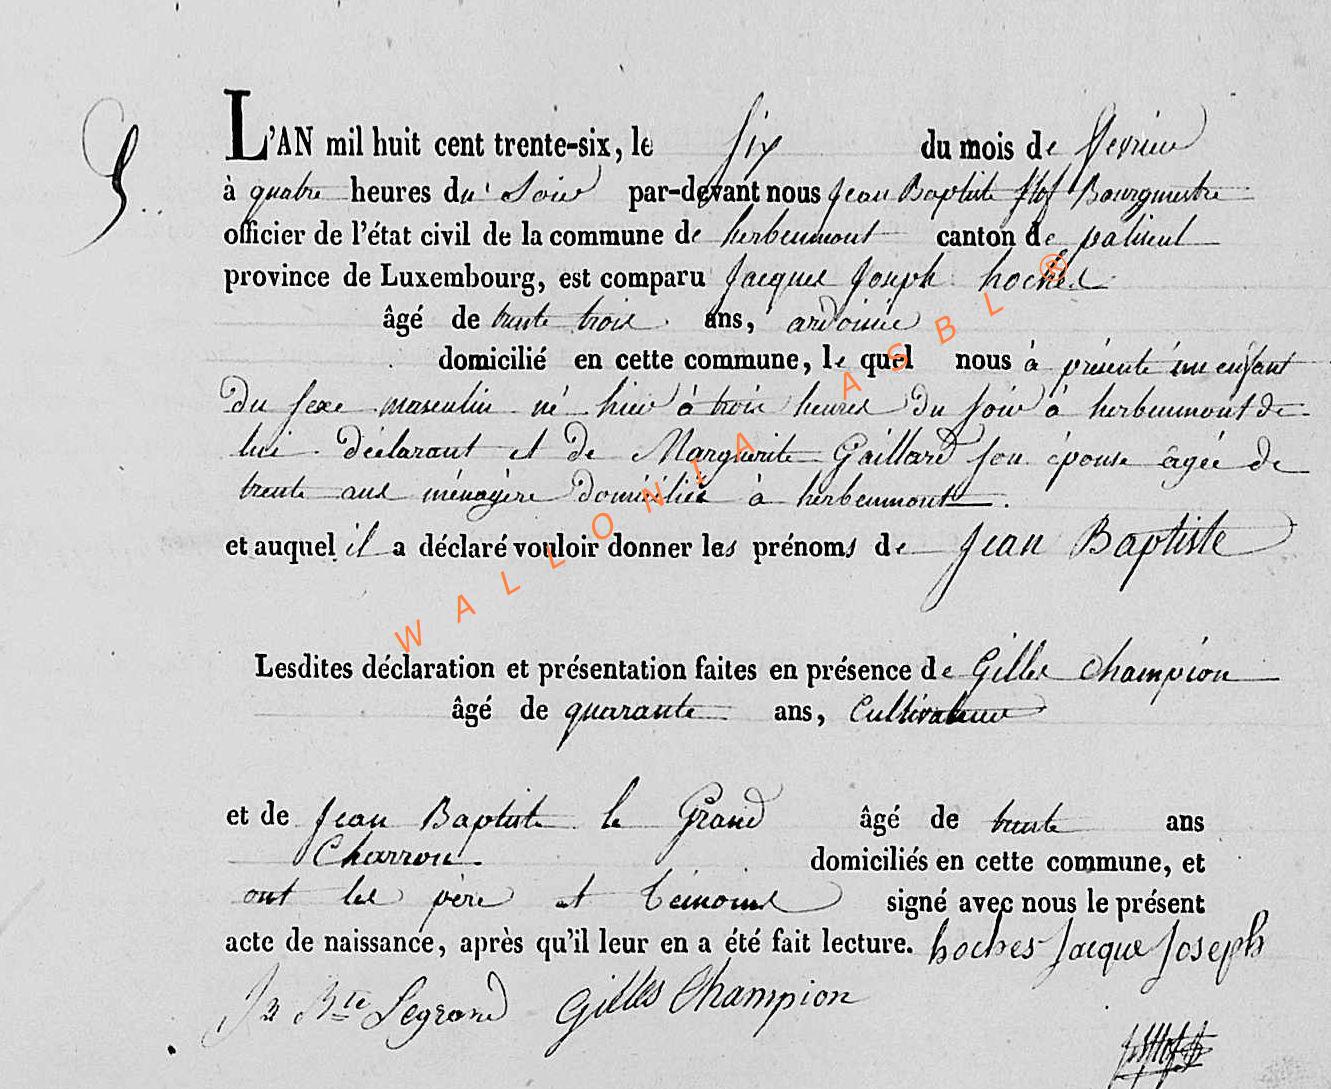 5..
L'AN mil huit cent trente-six, le Six du mois de fevrier
à quatre heures du Soir par-devant nous Jean Baptiste Bourgmestre
officier de l'état civil de la commune de herbeumont canton de paliseul
province de Luxembourg, est comparu Jacques Joseph hochés
âgé de trente trois ans, ardoisier
domicilié en cette commune, le quel nous à présenté un enfant
Du sexe masculin né hier à trois heures Du soir à herbeumont de
lui déclarant et de Marguerite Gaillard son épouse âgée de
trente ans ménagère Domiciliée à herbeumont.
et auquel il a déclaré vouloir donner les prénoms de Jean Baptiste
Lesdites déclaration et présentation faites en présence de Gilles Champion
âgé de quarante ans, Cultivateur
et de Jean Baptiste le Grand âgé de trente ans
Charron. domiciliés en cette commune, et
ont les père et témoins signé avec nous le présent
acte de naissance, après qu'il leur en a été fait lecture. hochés Jacque Joseph
Jn Bte Legrand Gilles Champion
WALLONIA ASBL ®